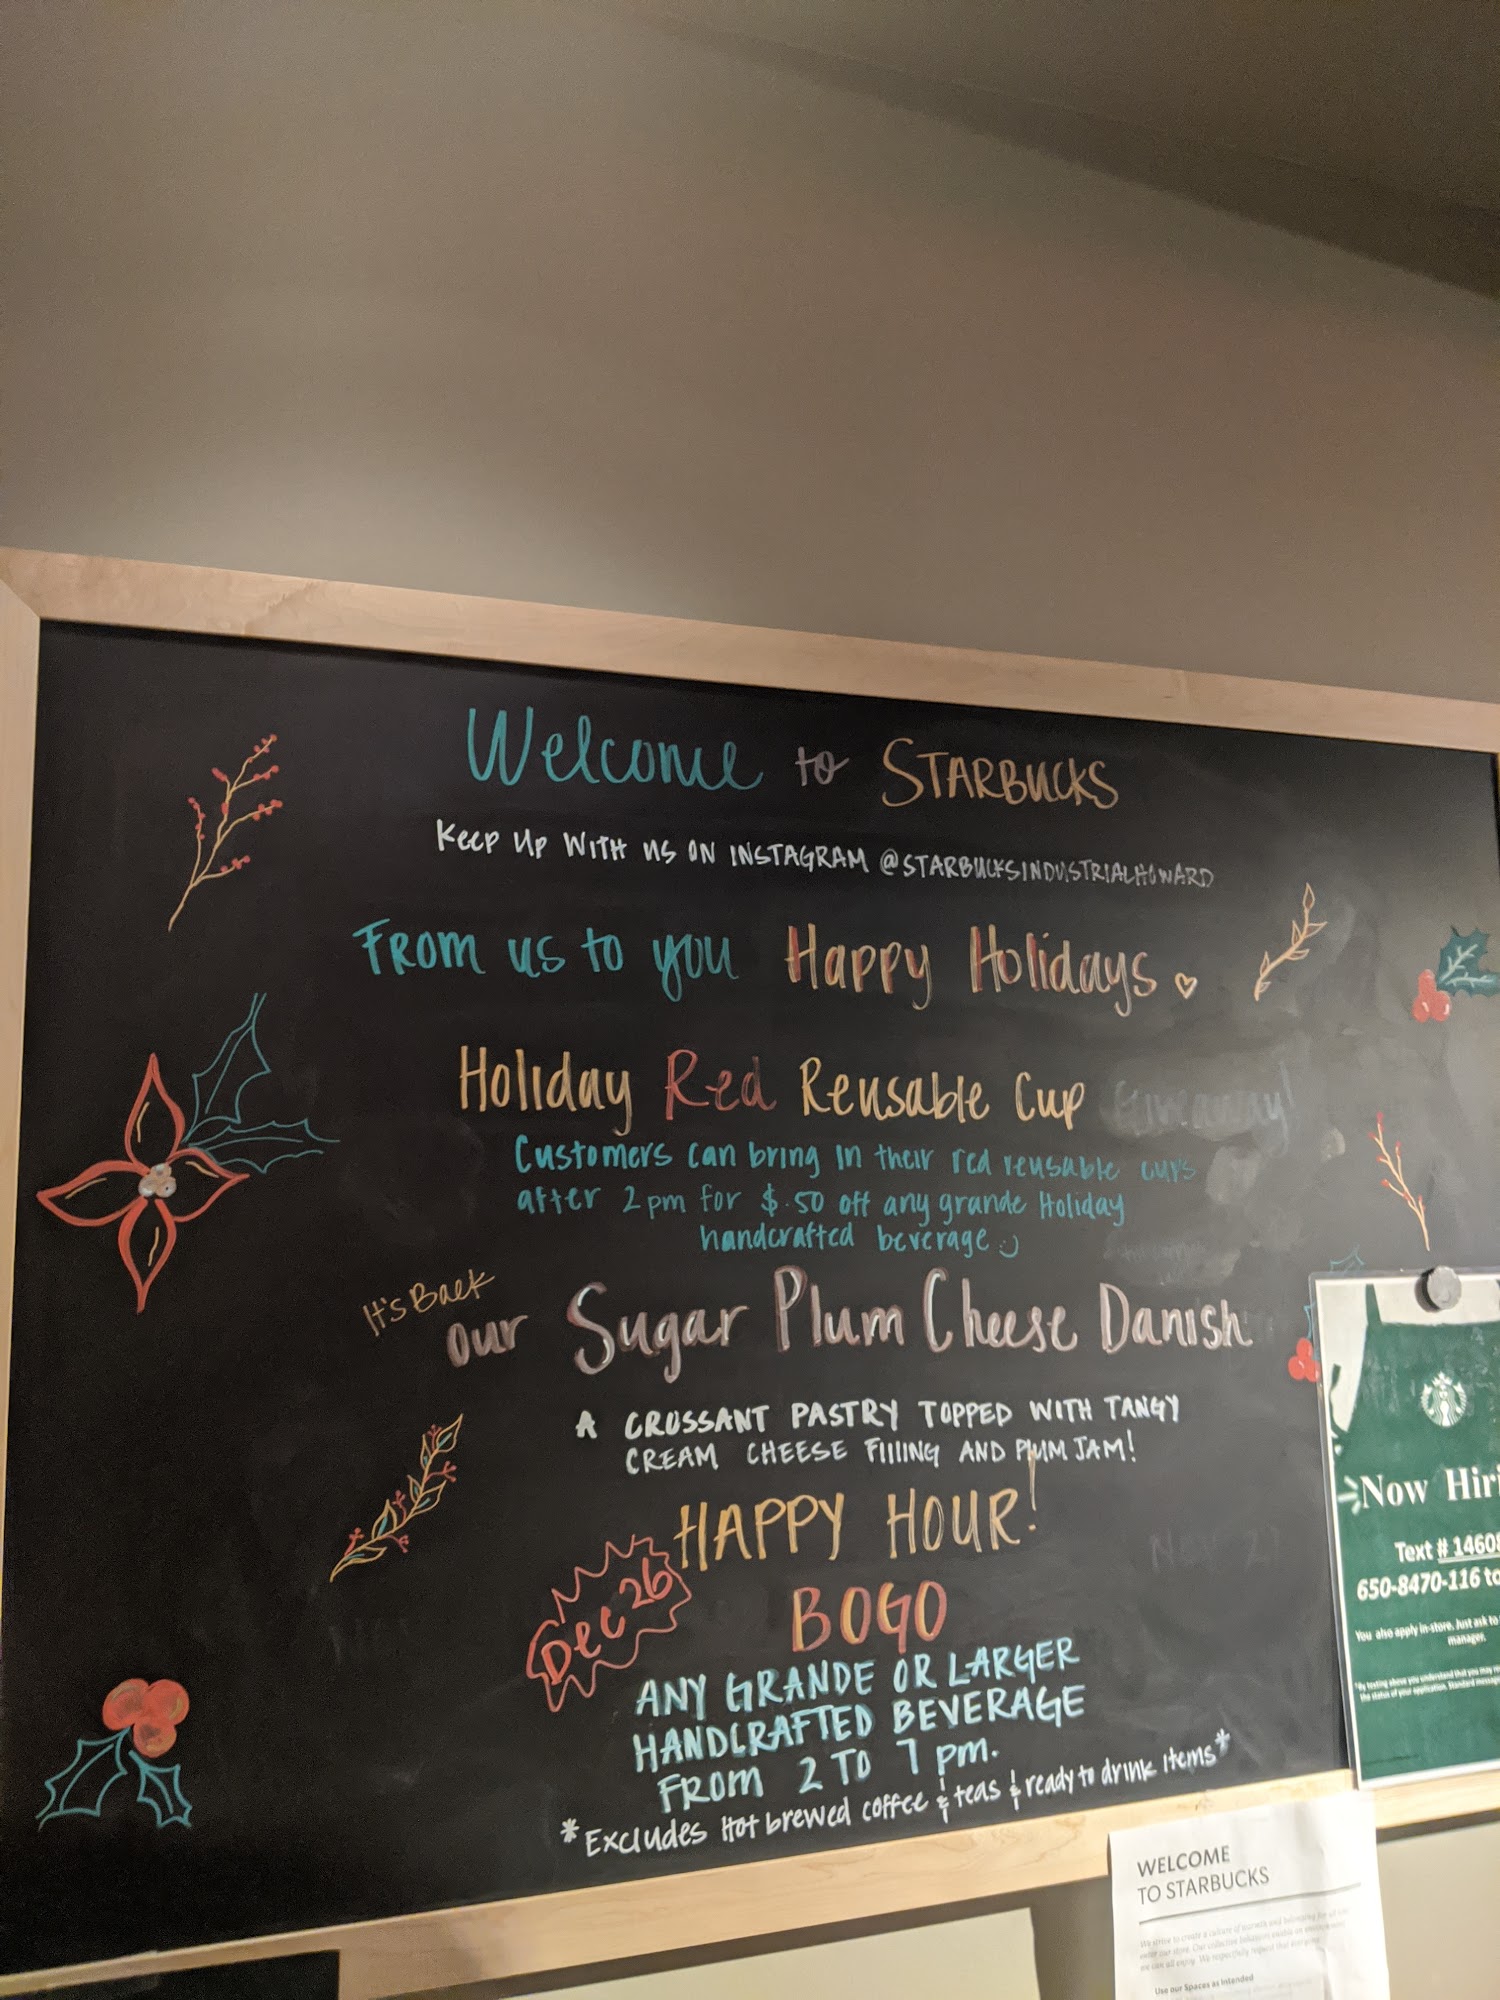 Welcome to STARBUCKS
Keep Up WITH US ON INSTAGRAM @STARBUCKSINDUSTRIALHOWARD
FROM us to you Happy Holidays
Holiday Red Reusable Cup Giveaway!
Customers can bring in their red reusable cups
after 2pm for $.50 off any grande Holiday
handcrafted beverage :)
It's Back
our Sugar Plum Cheese Danish
A CROSSANT PASTRY TOPPED WITH TANGY
CREAM CHEESE FIllING AND PLUM JAM!
HAPPY HOUR!
Dec 26
BOGO
ANY GRANDE OR LARGER
HANDCRAFTED BEVERAGE
FROM 2 TO 7 pm.
*Excludes Hot brewed coffee & teas & ready to drink items*
Now Hiri
Text # 14608
650-8470-116 to
You also apply in-store. Just ask to
manager.
WELCOME
TO STARBUCKS
Use our Spaces as Intended